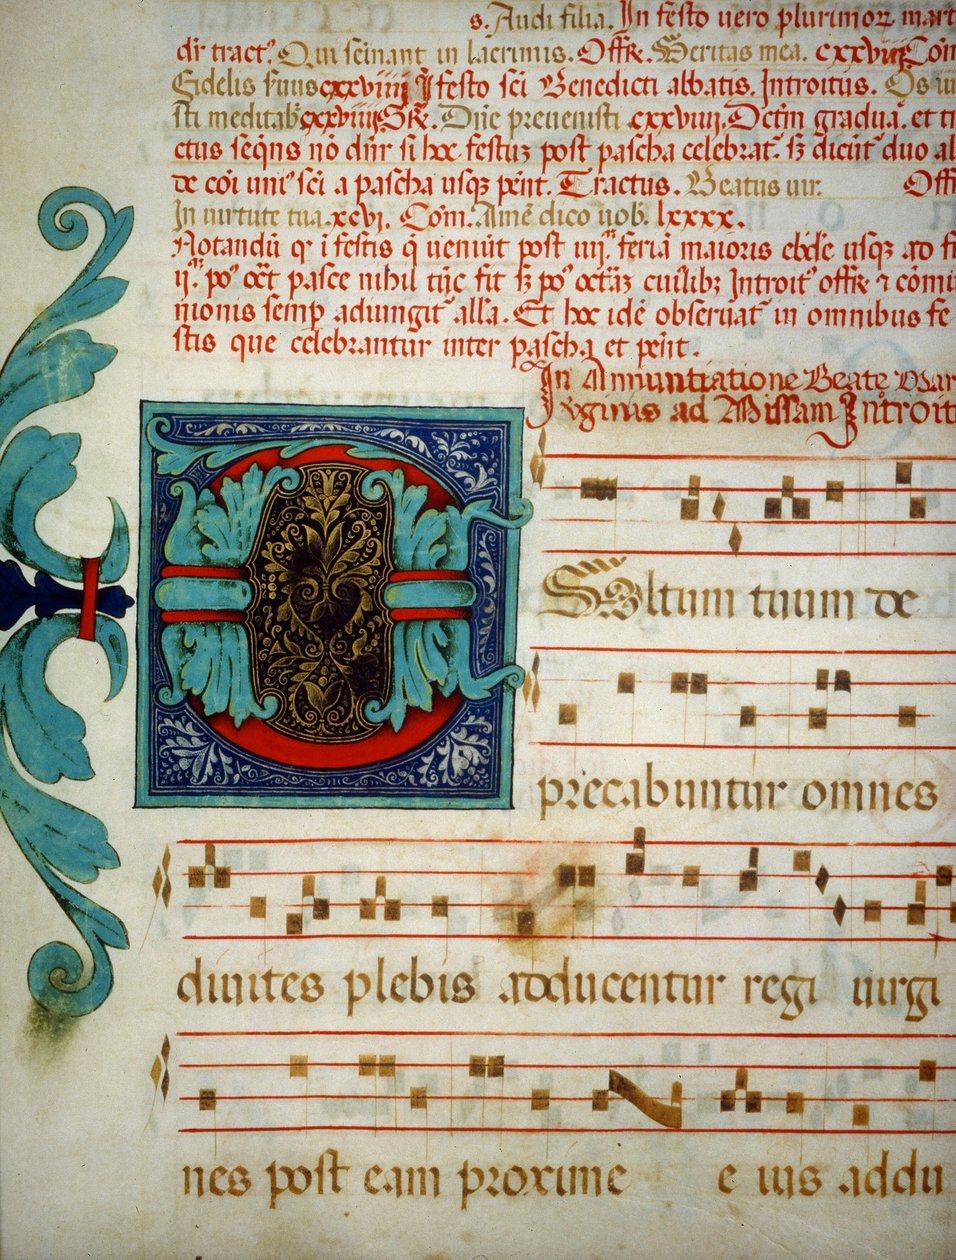 s. Audi filia. In festo uero plurimoꝝ mart
dr̄ tract᾽. Qui semināt in lacrimis. Offꝝ. Veritas mea. cxxviij Com̄
Fidelis seruus cxxviiij In festo sc̄i Benedicti abbatis. Introitus. Os iu
sti meditab᾽ cxxviiij Gꝝ. Dn̄e preuenisti cxxviiij. Dc̄m graduā. et t
ctus seq̄ns nō dn̄r si hoc festuꝫ post pascha celebrat᾽. sꝫ dicūt᾽ duo al
de cōi uni᾽ sc̄i a pascha usqꝫ pēnt. Tractus. Beatus uir. Offꝝ
In uirtute tua. xcvi. Com̄. Amē dico uob᾽. lxxxx.
Notandū qꝝ ī festis q̄ ueniūt post iiijᵃᵐ feriā maioris ebdē usqꝫ ad f
ijᵃᵐ po᾽ oct᾽ pasce nihil tūc fit sꝫ po᾽ octās cuilibꝫ Introit᾽ offꝝ ⁊ cōmu
nionis semꝑ adiungit᾽ all̄a. Et hoc idē obseruat᾽ in omnibus fe
stis que celebrantur inter pascha et pēnt.
In Annuntiatione Beate Mar
Vginis ad Missam Introit
Vltum tuum de
precabuntur omnes
diuites plebis adducentur regi uirgi
nes post eam proxime e ius addu